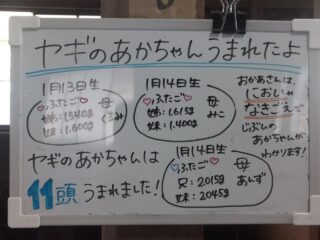 ヤギのあかちゃんうまれたよ
1月13日生
♡ふたご♡ 母
姉:1540g くるみ
妹:1.600g
1月14日生
♡ふたご♡ 母
姉:1.615g みこ
妹:1.400g
おかあさんは
においや
なきごえで
じぶんの
あかちゃんが
わかります!
ヤギのあかちゃんは
11頭うまれました!
1月14日生
♡ふたご♡ 母
兄:2015g あんず
妹:2045g